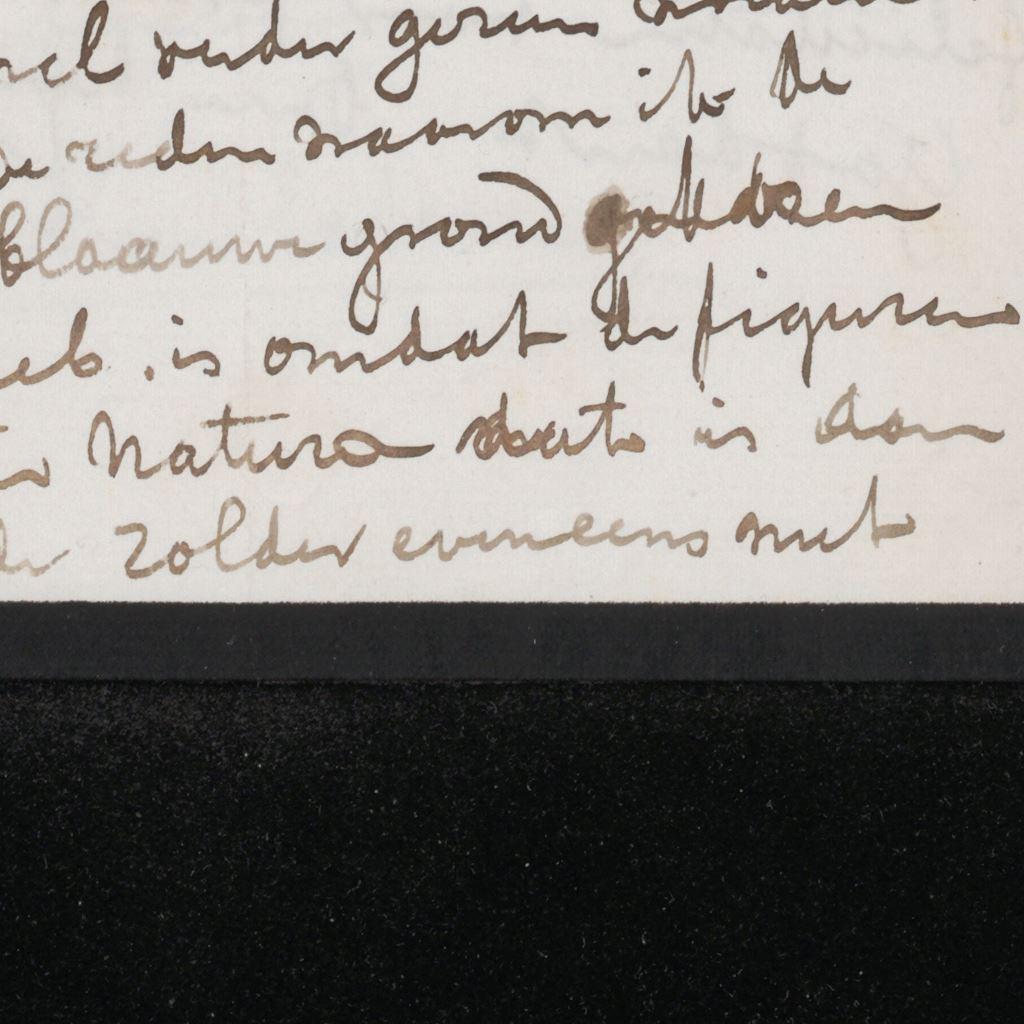 verder geven
reden waarom ik de
blaauwe grond gekozen
heb. is omdat de figuren
Natura dat is dan
de zolder eveneens met